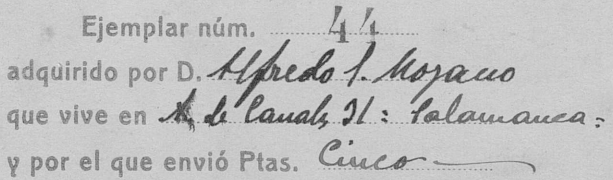 Ejemplar núm. 44
adquirido por D. Alfredo S. Mozano
que vive en A. de Canals 21: Salamanca:
y por el que envió Ptas. Cinco